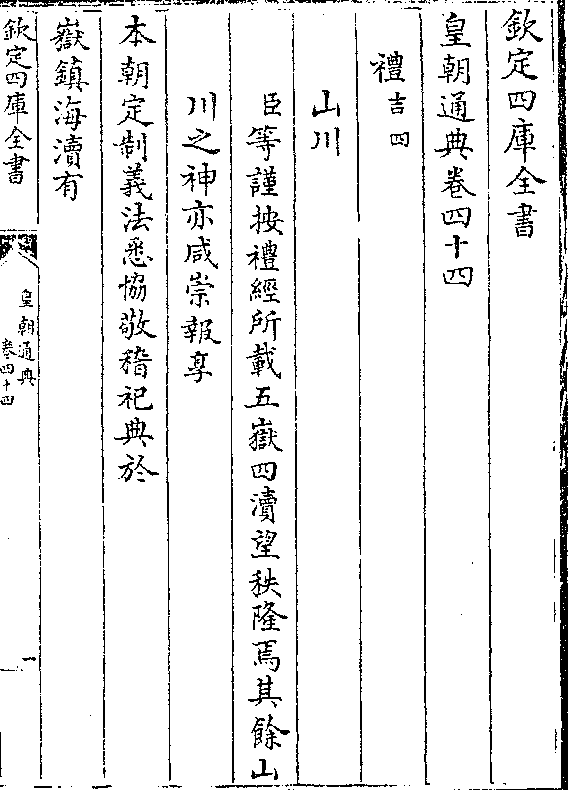 欽定四庫全書
皇朝通典卷四十四
禮吉四
山川
臣等謹按禮經所載五嶽四瀆望秩隆焉其餘山
川之神亦咸崇報享
本朝定制義法悉協敬稽祀典於
嶽鎮海瀆有
欽定四庫全書
皇朝通典
卷四十四
一